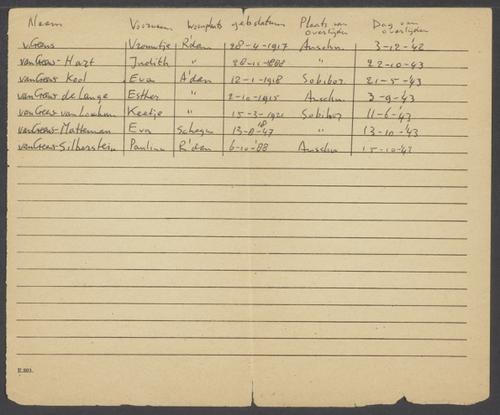 Naam Voornaam Woonplaats geb. datum Plaats van overlijden Dag van overlijden
v. Grens Vrouwtje R'dam 28-4-1917 Auschw. 3-12-42
van Grens-Hart Judith " 28-11-1888 " 22-10-43
van Grens Kool Eva A'dam 12-1-1918 Sobibor 21-5-43
van Grens de Lange Esther " 2-10-1915 Auschw. 3-9-43
van Grens van Loochem Keetje " 15-3-1921 Sobibor 11-6-43
van Grens-Matteman Eva 13-8-47 " 13-10-43
van Grens-Silberstein Paulina R'dam 6-10-'88 Auschw. 15-10-43